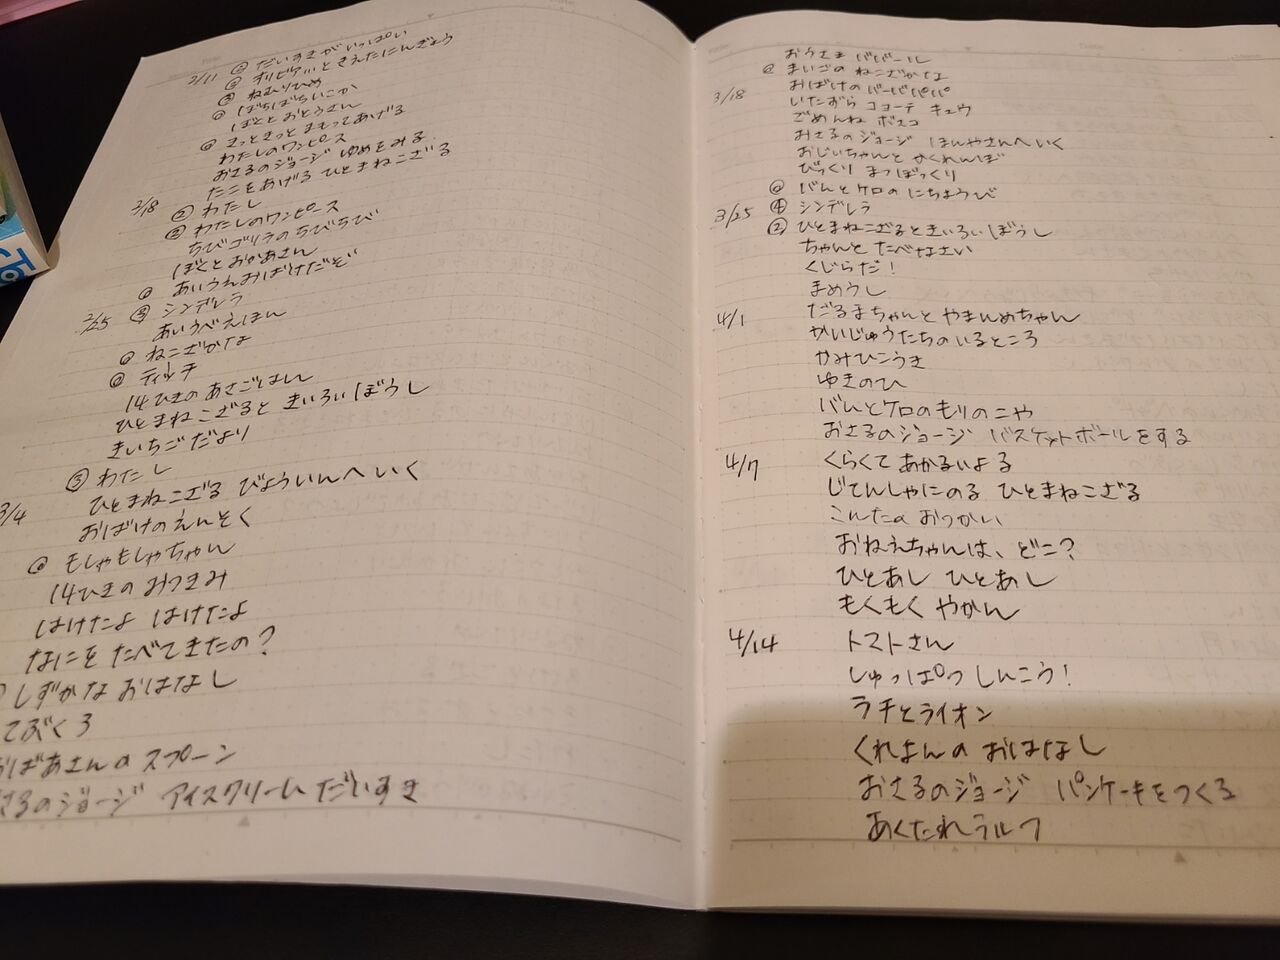 2/11 ② だいすきがいっぱい
② オリビア…ときえたにんぎょう
③ ねむりひめ
ぱちぱちいこか
ぼくとおとうさん
きっときっと まもってあげる
わたしのワンピース
おさるのジョージ ゆめをみる
たこをあげる ひとまねこざる
2/18 ② わたし
② わたしのワンピース
ちびゴリラのちびちび
ぼくとおかあさん
あいうえおばけだぞ
2/25 ③ シンデレラ
あいうべえほん
ねこざかな
ティッチ
14ひきの あさごはん
ひとまねこざると きいろいぼうし
きいちごだより
③ わたし
3/4 ひとまねこざる びょういんへいく
おばけのえんそく
もしゃもしゃちゃん
14ひきの みつきみ
はけたよ はけたよ
なにを たべてきたの?
しずかな おはなし
てぶくろ
おばあさんの スプーン
さるのジョージ アイスクリームだいすき
おうさま ババール
まいごの ねこざかな
3/18 おばけの バーバパパ
いたずら コヨーテ キュウ
ごめんね ボスコ
おさるのジョージ ほんやさんへいく
おじいちゃんと かくれんぼ
びっくり まつぼっくり
バムとケロの にちようび
3/25 ④ シンデレラ
② ひとまねこざるときいろいぼうし
ちゃんと たべなさい
くじらだ!
まめうし
4/1 だるまちゃんと やまんめちゃん
かいじゅうたちのいるところ
かみひこうき
ゆきのひ
バムとケロのもりのこや
おさるのジョージ バスケットボールをする
4/7 くらくて あかるいよる
じてんしゃにのる ひとまねこざる
こんたの おつかい
おねえちゃんは、どこ?
ひとあし ひとあし
もくもく やかん
4/14 トマトさん
しゅっぱつ しんこう!
ラチとライオン
くれよんの おはなし
おさるのジョージ パンケーキをつくる
あくたれラルフ